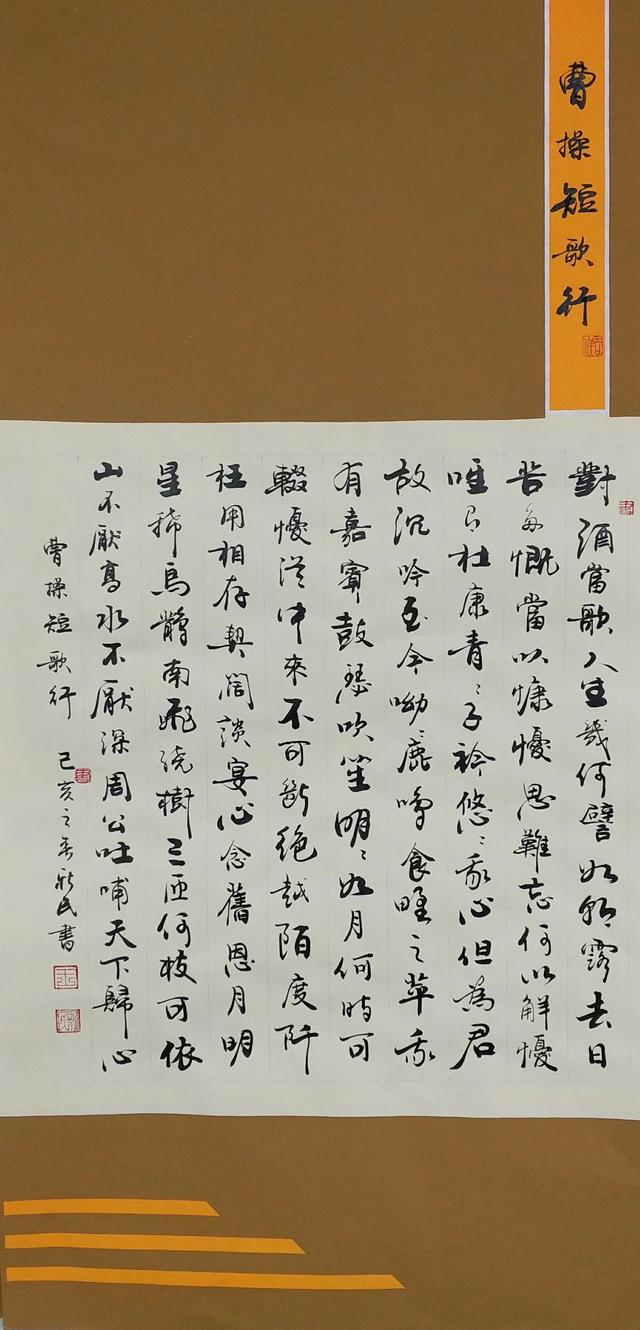 曹操短歌行
對酒當歌人生幾何譬如朝露去日
苦多慨當以慷憂思難忘何以解憂
唯有杜康青〻子衿悠〻我心但為君
故沉吟至今呦〻鹿鳴食野之苹我
有嘉賓鼓瑟吹笙明〻如月何時可
輟憂從中來不可斷絕越陌度阡
枉用相存契闊談宴心念舊恩月明
星稀烏鵲南飛繞樹三匝何枝可依
山不厭高水不厭深周公吐哺天下歸心
曹操短歌行 己亥之春新民書